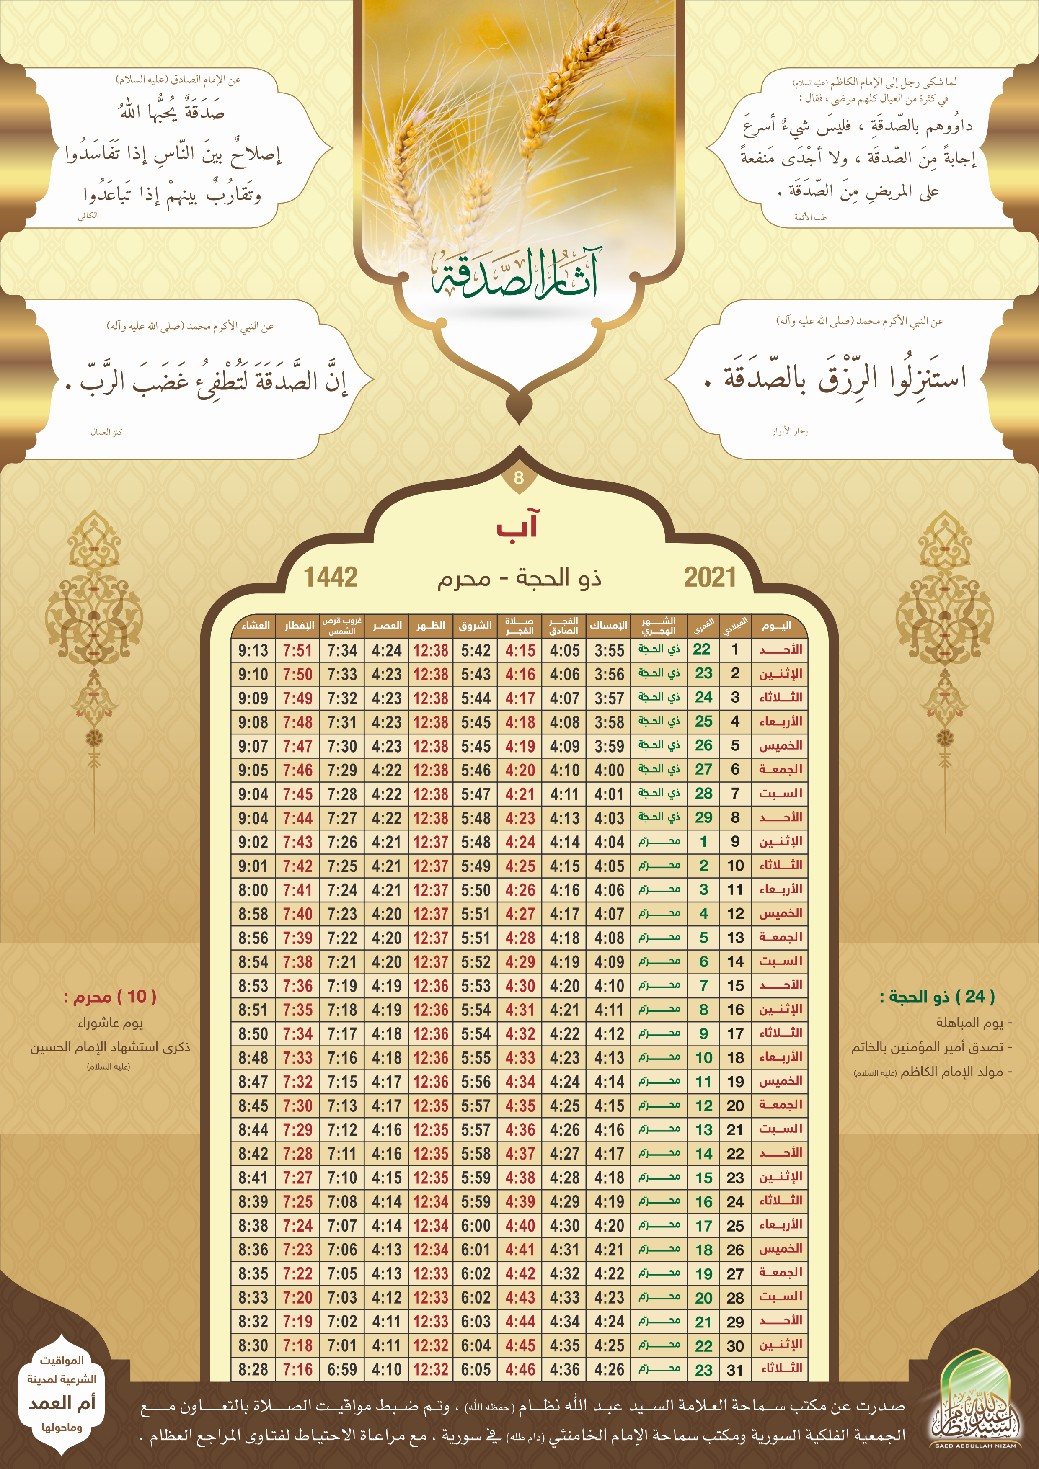 لما شكى رجل إلى الإمام الكاظم (عليه السلام)
في كثرة من العيال كلهم مرضى ، فقال :
داوُوهم بالصّدقَةِ ، فليسَ شيءٌ أسرعَ
إجابةً مِنَ الصّدقة ، ولا أجْدَى مَنفعةً
على المريضِ مِنَ الصّدَقَة .
طب الأئمة
عن الإمام الصادق (عليه السلام)
صَدَقَةٌ يُحبُّها اللهُ
إصلاحٌ بينَ النّاسِ إذا تَفَاسَدُوا
وتَقَارُبٌ بينهمْ إذا تَباعَدُوا
الكافي
آثار الصّدقة
عن النبي الأكرم محمد (صلى الله عليه وآله)
استَنزِلُوا الرِّزْقَ بالصّدَقَة .
بحار الأنوار
عن النبي الأكرم محمد (صلى الله عليه وآله)
إنَّ الصَّدَقَةَ لَتُطْفِئُ غَضَبَ الرَّبّ .
كنز العمال
8
آب
2021 ذو الحجة - محرم 1442
اليوم الميلادي القمري الشهر الهجري الإمساك الفجر الصادق صلاة الفجر الشروق الظهر العصر غروب قرص الشمس الإفطار العشاء
الأحد 1 22 ذي الحجة 3:55 4:05 4:15 5:42 12:38 4:24 7:34 7:51 9:13
الإثنين 2 23 ذي الحجة 3:56 4:06 4:16 5:43 12:38 4:23 7:33 7:50 9:10
الثلاثاء 3 24 ذي الحجة 3:57 4:07 4:17 5:44 12:38 4:23 7:32 7:49 9:09
الأربعاء 4 25 ذي الحجة 3:58 4:08 4:18 5:45 12:38 4:23 7:31 7:48 9:08
الخميس 5 26 ذي الحجة 3:59 4:09 4:19 5:45 12:38 4:23 7:30 7:47 9:07
الجمعة 6 27 ذي الحجة 4:00 4:10 4:20 5:46 12:38 4:22 7:29 7:46 9:05
السبت 7 28 ذي الحجة 4:01 4:11 4:21 5:47 12:38 4:22 7:28 7:45 9:04
الأحد 8 29 ذي الحجة 4:03 4:13 4:23 5:48 12:38 4:22 7:27 7:44 9:04
الإثنين 9 1 محرم 4:04 4:14 4:24 5:48 12:37 4:21 7:26 7:43 9:02
الثلاثاء 10 2 محرم 4:05 4:15 4:25 5:49 12:37 4:21 7:25 7:42 9:01
الأربعاء 11 3 محرم 4:06 4:16 4:26 5:50 12:37 4:21 7:24 7:41 8:00
الخميس 12 4 محرم 4:07 4:17 4:27 5:51 12:37 4:20 7:23 7:40 8:58
الجمعة 13 5 محرم 4:08 4:18 4:28 5:51 12:37 4:20 7:22 7:39 8:56
السبت 14 6 محرم 4:09 4:19 4:29 5:52 12:37 4:20 7:21 7:38 8:54
الأحد 15 7 محرم 4:10 4:20 4:30 5:53 12:36 4:19 7:19 7:36 8:53
الإثنين 16 8 محرم 4:11 4:21 4:31 5:54 12:36 4:19 7:18 7:35 8:51
الثلاثاء 17 9 محرم 4:12 4:22 4:32 5:54 12:36 4:18 7:17 7:34 8:50
الأربعاء 18 10 محرم 4:13 4:23 4:33 5:55 12:36 4:18 7:16 7:33 8:48
الخميس 19 11 محرم 4:14 4:24 4:34 5:56 12:36 4:17 7:15 7:32 8:47
الجمعة 20 12 محرم 4:15 4:25 4:35 5:57 12:35 4:17 7:13 7:30 8:45
السبت 21 13 محرم 4:16 4:26 4:36 5:57 12:35 4:16 7:12 7:29 8:44
الأحد 22 14 محرم 4:17 4:27 4:37 5:58 12:35 4:16 7:11 7:28 8:42
الإثنين 23 15 محرم 4:18 4:28 4:38 5:59 12:35 4:15 7:10 7:27 8:41
الثلاثاء 24 16 محرم 4:19 4:29 4:39 5:59 12:34 4:14 7:08 7:25 8:39
الأربعاء 25 17 محرم 4:20 4:30 4:40 6:00 12:34 4:14 7:07 7:24 8:38
الخميس 26 18 محرم 4:21 4:31 4:41 6:01 12:34 4:13 7:06 7:23 8:36
الجمعة 27 19 محرم 4:22 4:32 4:42 6:02 12:33 4:13 7:05 7:22 8:35
السبت 28 20 محرم 4:23 4:33 4:43 6:02 12:33 4:12 7:03 7:20 8:33
الأحد 29 21 محرم 4:24 4:34 4:44 6:03 12:33 4:11 7:02 7:19 8:32
الإثنين 30 22 محرم 4:25 4:35 4:45 6:04 12:32 4:11 7:01 7:18 8:30
الثلاثاء 31 23 محرم 4:26 4:36 4:46 6:05 12:32 4:10 6:59 7:16 8:28
( 24 ) ذو الحجة :
- يوم المباهلة
- تصدق أمير المؤمنين بالخاتم
- مولد الإمام الكاظم (عليه السلام)
( 10 ) محرم :
يوم عاشوراء
ذكرى استشهاد الإمام الحسين
(عليه السلام)
صدرت عن مكتب سماحة العلامة السيد عبد الله نظام (حفظه الله) ، وتم ضبط مواقيت الصلاة بالتعاون مع
الجمعية الفلكية السورية ومكتب سماحة الإمام الخامنئي (دام ظله) في سورية ، مع مراعاة الاحتياط لفتاوى المراجع العظام .
المواقيت
الشرعية لمدينة
أم العمد
وماحولها
السيد عبد الله نظام
SAED ABDULLAH NIZAM